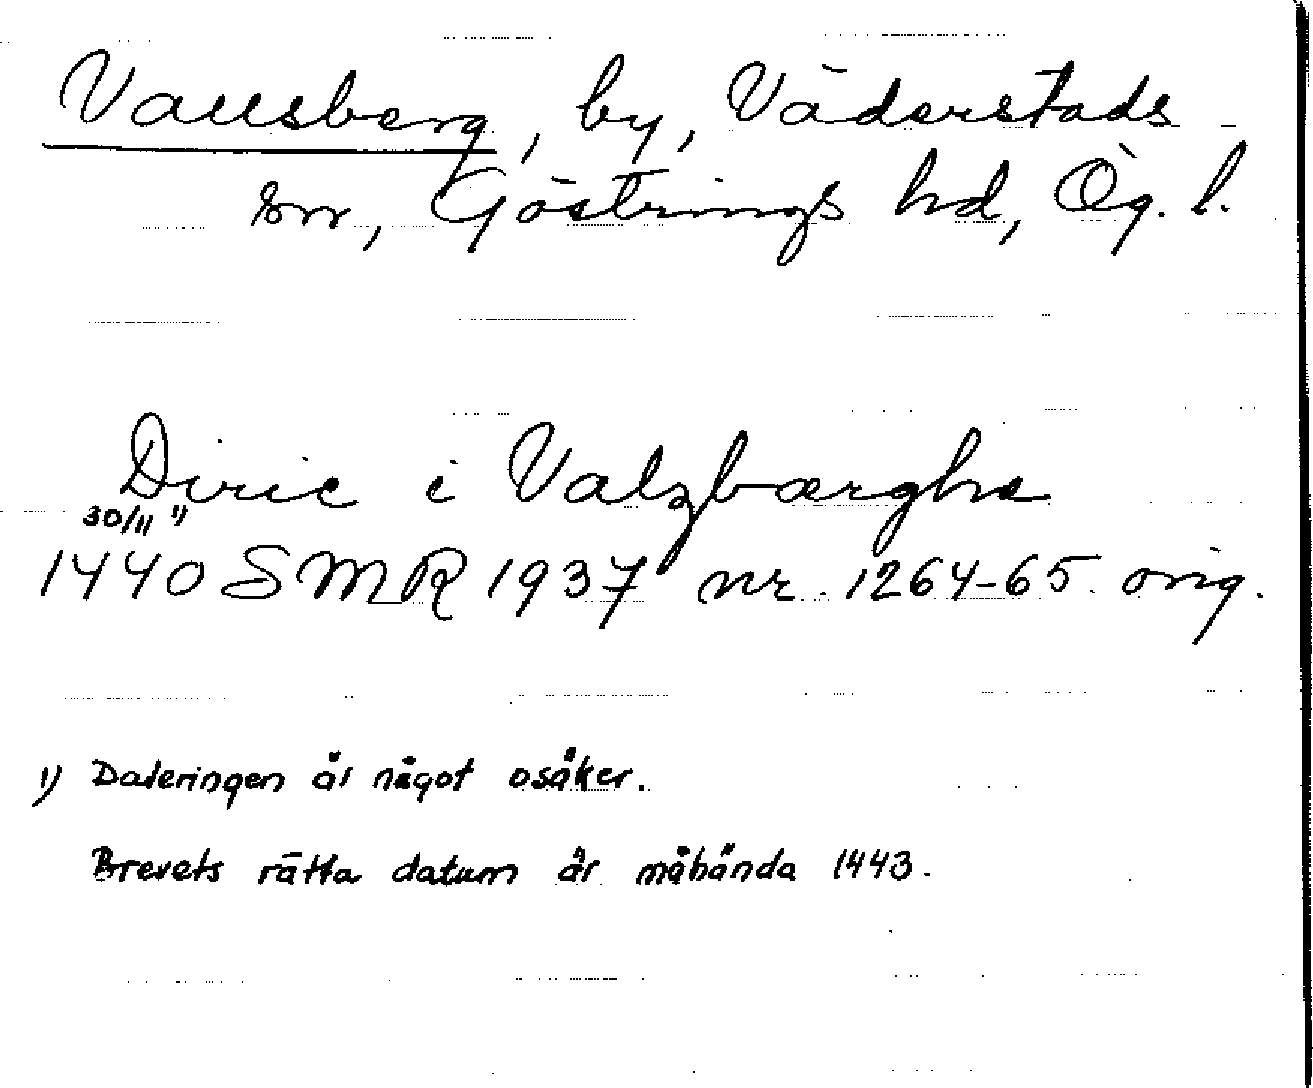 Vallsberg, by, Väderstads
sn, Göstrings hd, Ög. l.
Diric i Valzbærghe
30/11 1)
1440 SMR 1937 nr 1264-65 orig.
1) Dateringen är något osäker.
Brevets rätta datum är måhända 1443.